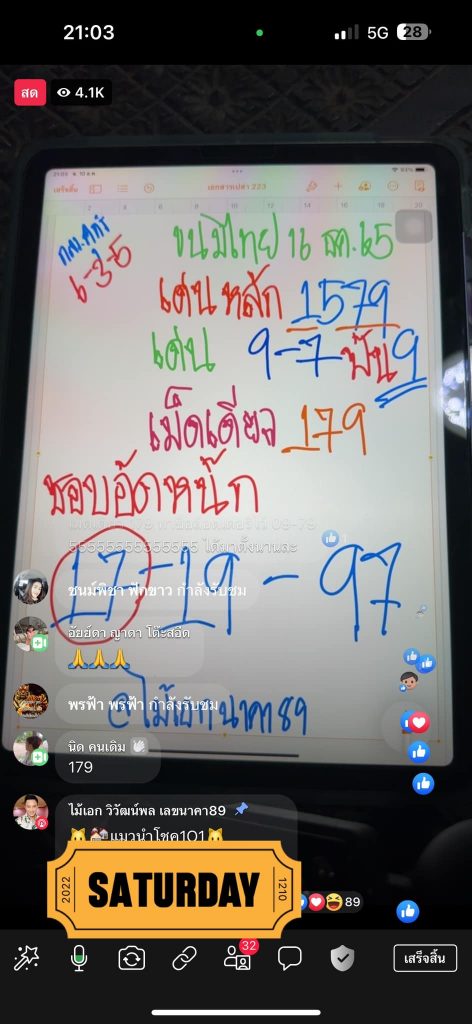 21:03
5G 28
สด 4.1K
21:03
93%
เสร็จสิ้น
เอกสารเปล่า 223
2 4 6 8 10 12 14 16 18 20
6-3-5
ขนมไทย 16 สค.65
เด่นหลัก 1579
เด่น 9-7 ฟัน 9
เม็ดเดียว 179
ชอบอัดหนัก
55555555555555 ได้มาตั้งนานละ
1
17-19-97
ชนม์พิชา ฟักขาว กำลังรับชม
🙏🙏🙏
พรฟ้า พรฟ้า กำลังรับชม
@ไม้เอกนาคา89
นิด คนเดิม
179
ไม้เอก วิวัฒน์พล เลขนาคา89
แมวนำโชค101
2022 SATURDAY 1210
89
32
เสร็จสิ้น